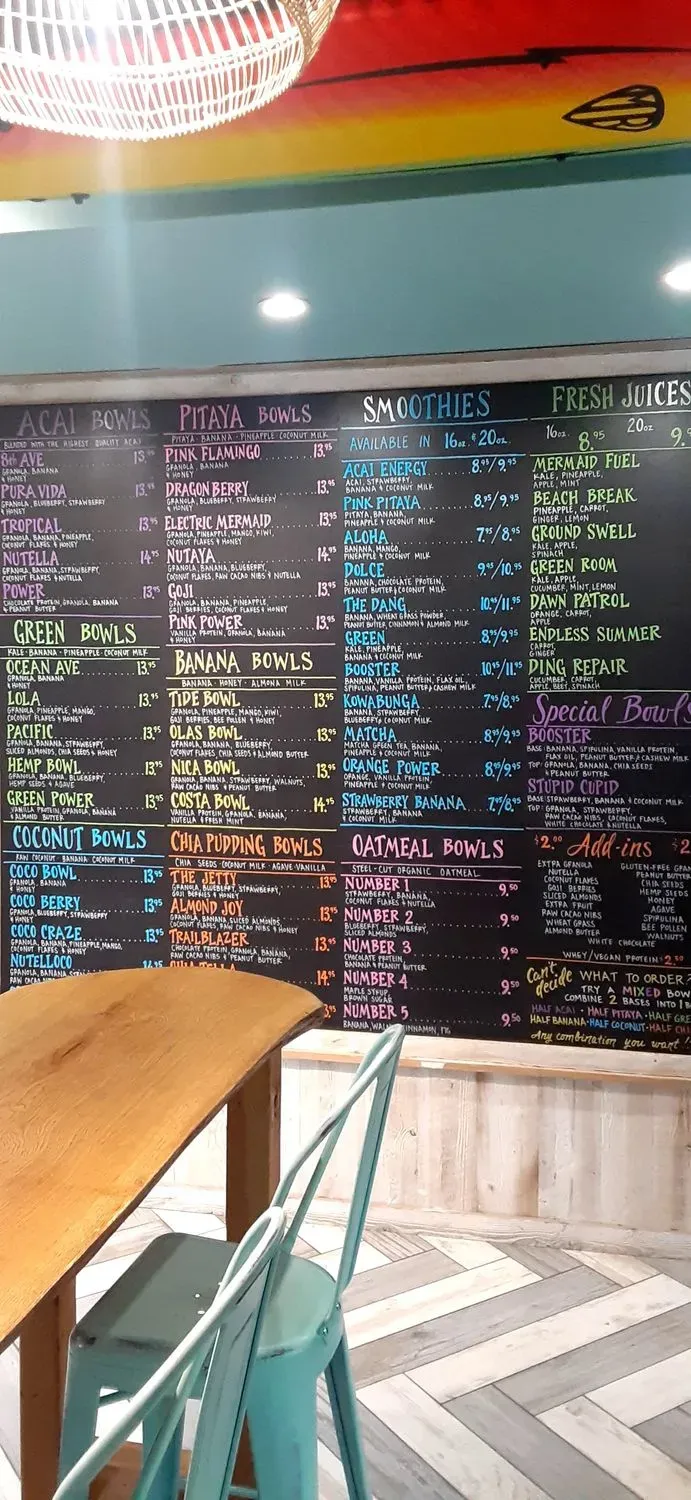 MR
ACAI BOWLS
BLENDED WITH THE HIGHEST QUALITY ACAI
8th AVE 13.95
GRANOLA, BANANA
& HONEY
PURA VIDA 13.95
GRANOLA, BLUEBERRY, STRAWBERRY
& HONEY
TROPICAL 13.95
GRANOLA, BANANA, PINEAPPLE,
COCONUT FLAKES & HONEY
NUTELLA 14.95
GRANOLA, BANANA, STRAWBERRY,
COCONUT FLAKES & NUTELLA
POWER 13.95
CHOCOLATE PROTEIN, GRANOLA, BANANA
& PEANUT BUTTER
GREEN BOWLS
KALE · BANANA · PINEAPPLE · COCONUT MILK
OCEAN AVE 13.95
GRANOLA, BANANA
& HONEY
LOLA 13.95
GRANOLA, PINEAPPLE, MANGO,
COCONUT FLAKES & HONEY
PACIFIC 13.95
GRANOLA, BANANA, STRAWBERRY,
SLICED ALMONDS, CHIA SEEDS & HONEY
HEMP BOWL 13.95
GRANOLA, BANANA, BLUEBERRY,
HEMP SEEDS & AGAVE
GREEN POWER 13.95
VANILLA PROTEIN, GRANOLA, BANANA
& ALMOND BUTTER
COCONUT BOWLS
RAW COCONUT · BANANA · COCONUT MILK
COCO BOWL 13.95
GRANOLA, BANANA
& HONEY
COCO BERRY 13.95
GRANOLA, BLUEBERRY, STRAWBERRY
& HONEY
COCO CRAZE 13.95
GRANOLA, BANANA, PINEAPPLE, MANGO,
COCONUT FLAKES & HONEY
NUTELLOCO
GRANOLA, BANANA
RAW CACAO NIBS
PITAYA BOWLS
PITAYA · BANANA · PINEAPPLE · COCONUT MILK
PINK FLAMINGO 13.95
GRANOLA, BANANA
& HONEY
DRAGON BERRY 13.95
GRANOLA, BLUEBERRY, STRAWBERRY
& HONEY
ELECTRIC MERMAID 13.95
GRANOLA, PINEAPPLE, MANGO, KIWI,
COCONUT FLAKES & HONEY
NUTAYA 14.95
GRANOLA, BANANA, BLUEBERRY,
COCONUT FLAKES, RAW CACAO NIBS & NUTELLA
GOJI 13.95
GRANOLA, BANANA, PINEAPPLE,
GOJI BERRIES, COCONUT FLAKES & HONEY
PINK POWER 13.95
VANILLA PROTEIN, GRANOLA, BANANA
& HONEY
BANANA BOWLS
BANANA · HONEY · ALMOND MILK
TIDE BOWL 13.95
GRANOLA, PINEAPPLE, MANGO, KIWI,
GOJI BERRIES, BEE POLLEN & HONEY
OLAS BOWL 13.95
GRANOLA, BANANA, BLUEBERRY,
COCONUT FLAKES, CHIA SEEDS & ALMOND BUTTER
NICA BOWL 13.95
GRANOLA, BANANA, STRAWBERRY, WALNUTS,
RAW CACAO NIBS & PEANUT BUTTER
COSTA BOWL 14.95
VANILLA PROTEIN, GRANOLA, BANANA,
NUTELLA & FRESH MINT
CHIA PUDDING BOWLS
CHIA SEEDS · COCONUT MILK · AGAVE · VANILLA
THE JETTY 13.95
GRANOLA, BLUEBERRY, STRAWBERRY,
GOJI BERRIES & HONEY
ALMOND JOY 13.95
GRANOLA, BANANA, SLICED ALMONDS,
COCONUT FLAKES, RAW CACAO NIBS & HONEY
TRAILBLAZER 13.95
CHOCOLATE PROTEIN, GRANOLA, BANANA,
RAW CACAO NIBS & PEANUT BUTTER
14.95
SMOOTHIES
AVAILABLE IN 16oz. & 20oz.
ACAI ENERGY 8.95/9.95
ACAI, STRAWBERRY,
BANANA & COCONUT MILK
PINK PITAYA 8.95/9.95
PITAYA, BANANA,
PINEAPPLE & COCONUT MILK
ALOHA 7.95/8.95
BANANA, MANGO,
PINEAPPLE & COCONUT MILK
DOLCE 9.95/10.95
BANANA, CHOCOLATE PROTEIN,
PEANUT BUTTER & COCONUT MILK
THE DANG 10.95/11.95
BANANA, WHEAT GRASS POWDER,
PEANUT BUTTER, CINNAMON & ALMOND MILK
GREEN 8.95/9.95
KALE, PINEAPPLE,
BANANA & COCONUT MILK
BOOSTER 10.95/11.95
BANANA, VANILLA PROTEIN, FLAX OIL,
SPIRULINA, PEANUT BUTTER & CASHEW MILK
KOWABUNGA 7.95/8.95
BANANA, STRAWBERRY
BLUEBERRY & COCONUT MILK
MATCHA 8.95/9.95
MATCHA GREEN TEA, BANANA,
PINEAPPLE & COCONUT MILK
ORANGE POWER 8.95/9.95
ORANGE, VANILLA PROTEIN,
PINEAPPLE & COCONUT MILK
STRAWBERRY BANANA 7.95/8.95
STRAWBERRY, BANANA
& COCONUT MILK
OATMEAL BOWLS
STEEL-CUT ORGANIC OATMEAL
NUMBER 1 9.50
STRAWBERRY, BANANA,
COCONUT FLAKES & NUTELLA
NUMBER 2 9.50
BLUEBERRY, STRAWBERRY,
SLICED ALMONDS
NUMBER 3 9.50
CHOCOLATE PROTEIN,
BANANA & PEANUT BUTTER
NUMBER 4 9.50
MAPLE SYRUP,
BROWN SUGAR
NUMBER 5 9.50
BANANA, CINNAMON, FIG
FRESH JUICES
16oz. 8.95 20oz 9.
MERMAID FUEL
KALE, PINEAPPLE,
APPLE, MINT
BEACH BREAK
PINEAPPLE, CARROT,
GINGER, LEMON
GROUND SWELL
KALE, APPLE,
SPINACH
GREEN ROOM
KALE, APPLE,
CUCUMBER, MINT, LEMON
DAWN PATROL
ORANGE, CARROT,
APPLE
ENDLESS SUMMER
CARROT,
GINGER
DING REPAIR
CUCUMBER, CARROT,
APPLE, BEET, SPINACH
Special Bowls
BOOSTER
BASE: BANANA, SPIRULINA, VANILLA PROTEIN,
FLAX OIL, PEANUT BUTTER & CASHEW MILK
TOP: GRANOLA, BANANA, CHIA SEEDS
& PEANUT BUTTER
STUPID CUPID
BASE: STRAWBERRY, BANANA & COCONUT MILK
TOP: GRANOLA, STRAWBERRY,
RAW CACAO NIBS, COCONUT FLAKES,
WHITE CHOCOLATE & NUTELLA
$2.00 Add-ins $2
EXTRA GRANOLA
NUTELLA
COCONUT FLAKES
GOJI BERRIES
SLICED ALMONDS
EXTRA FRUIT
RAW CACAO NIBS
WHEAT GRASS
ALMOND BUTTER
GLUTEN-FREE GRAN
PEANUT BUTTER
CHIA SEEDS
HEMP SEEDS
HONEY
AGAVE
SPIRULINA
BEE POLLEN
WALNUTS
WHITE CHOCOLATE
WHEY/VEGAN PROTEIN $2.50
Can't decide WHAT TO ORDER?
TRY A MIXED BOW
COMBINE 2 BASES INTO 1 B
HALF ACAI · HALF PITAYA · HALF GRE
HALF BANANA · HALF COCONUT · HALF CH
Any combination you want!